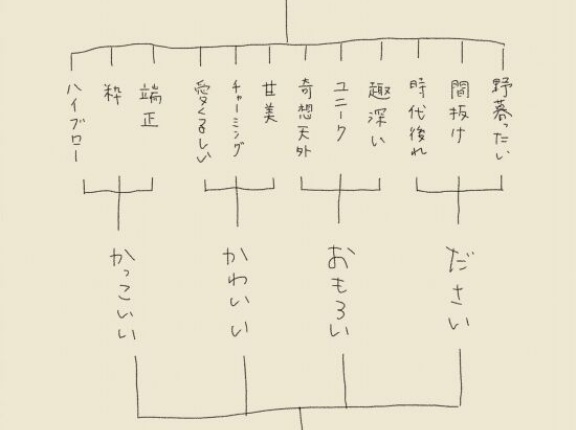 野暮ったい
間抜け
時代後れ
趣深い
ユニーク
奇想天外
甘美
チャーミング
愛くるしい
端正
粋
ハイブロー
ださい
おもろい
かわいい
かっこいい